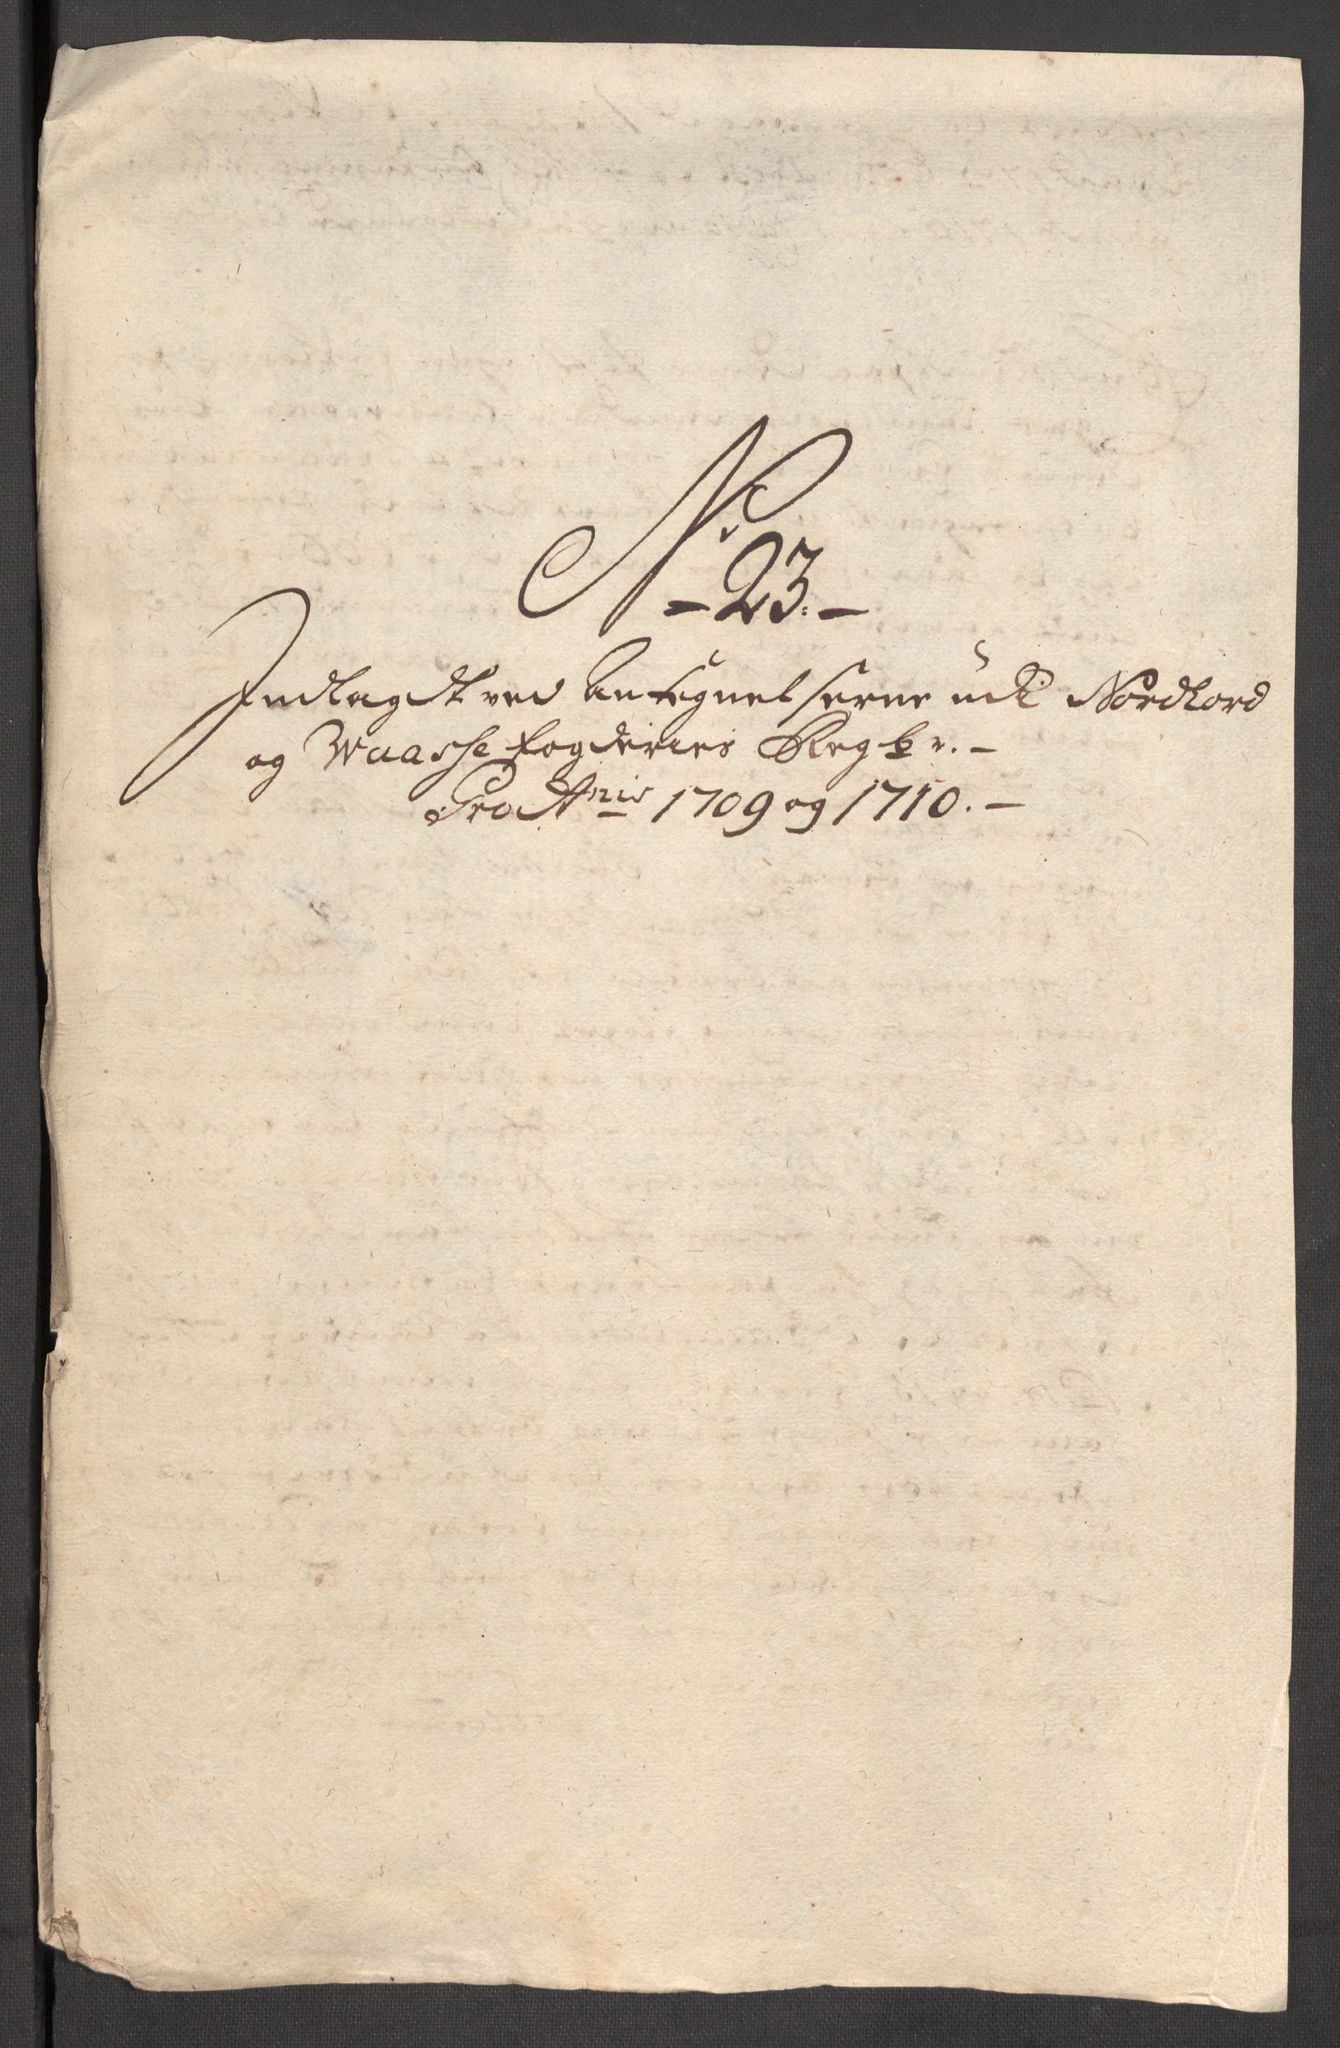 No
- 23. -
Indlagdt ved Antegnelserne udi Nordhord
og Waasse fogderies Regsk r. -
Pro Anis 1709 og 1710. -